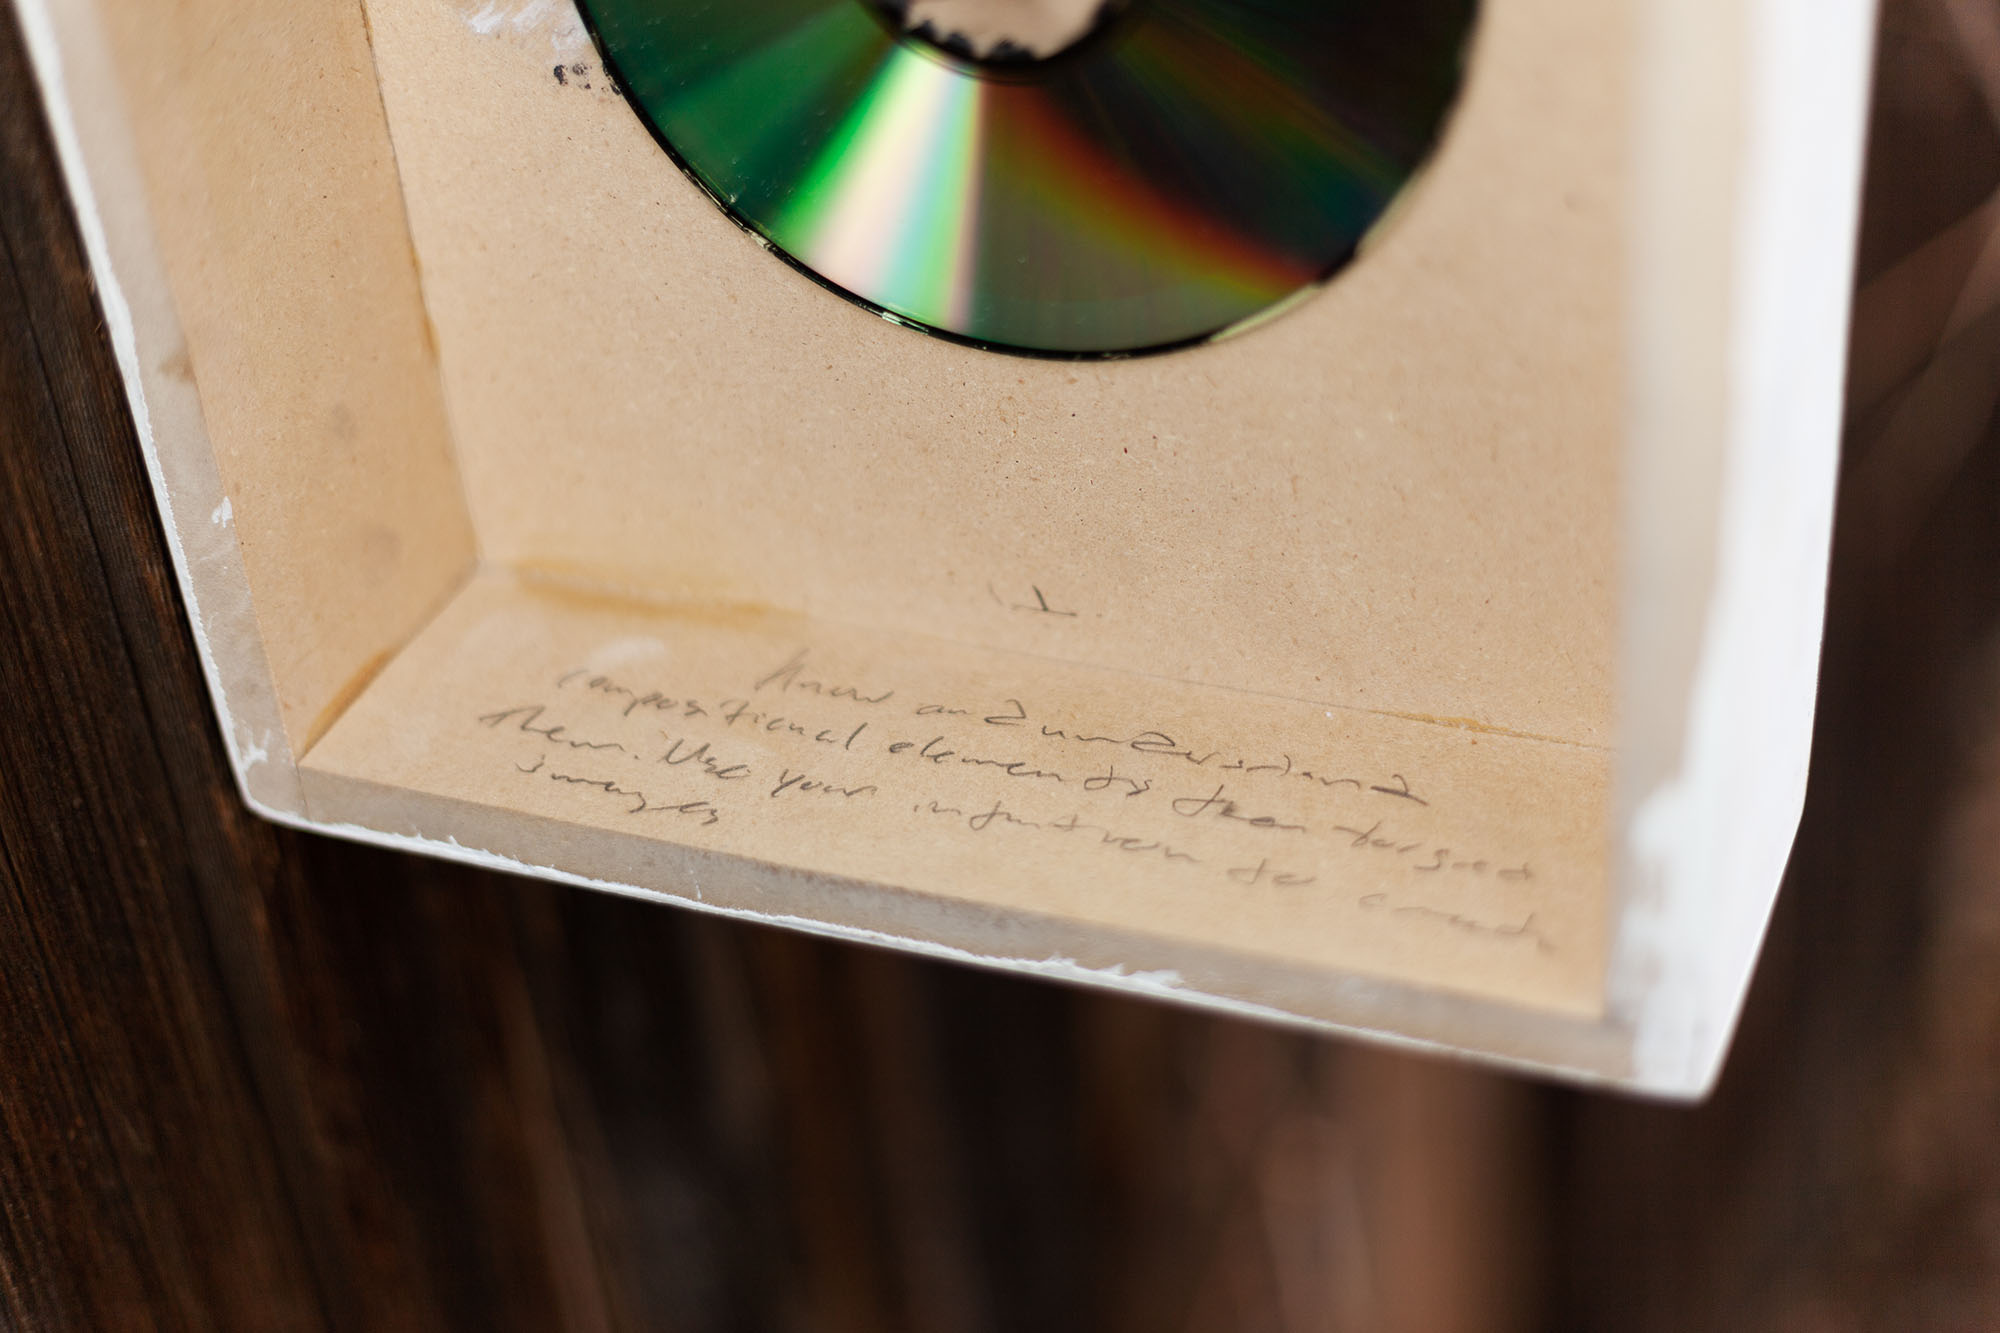 1.
Know and understand
compositional elements then forget
them. Use your intuition to create
images